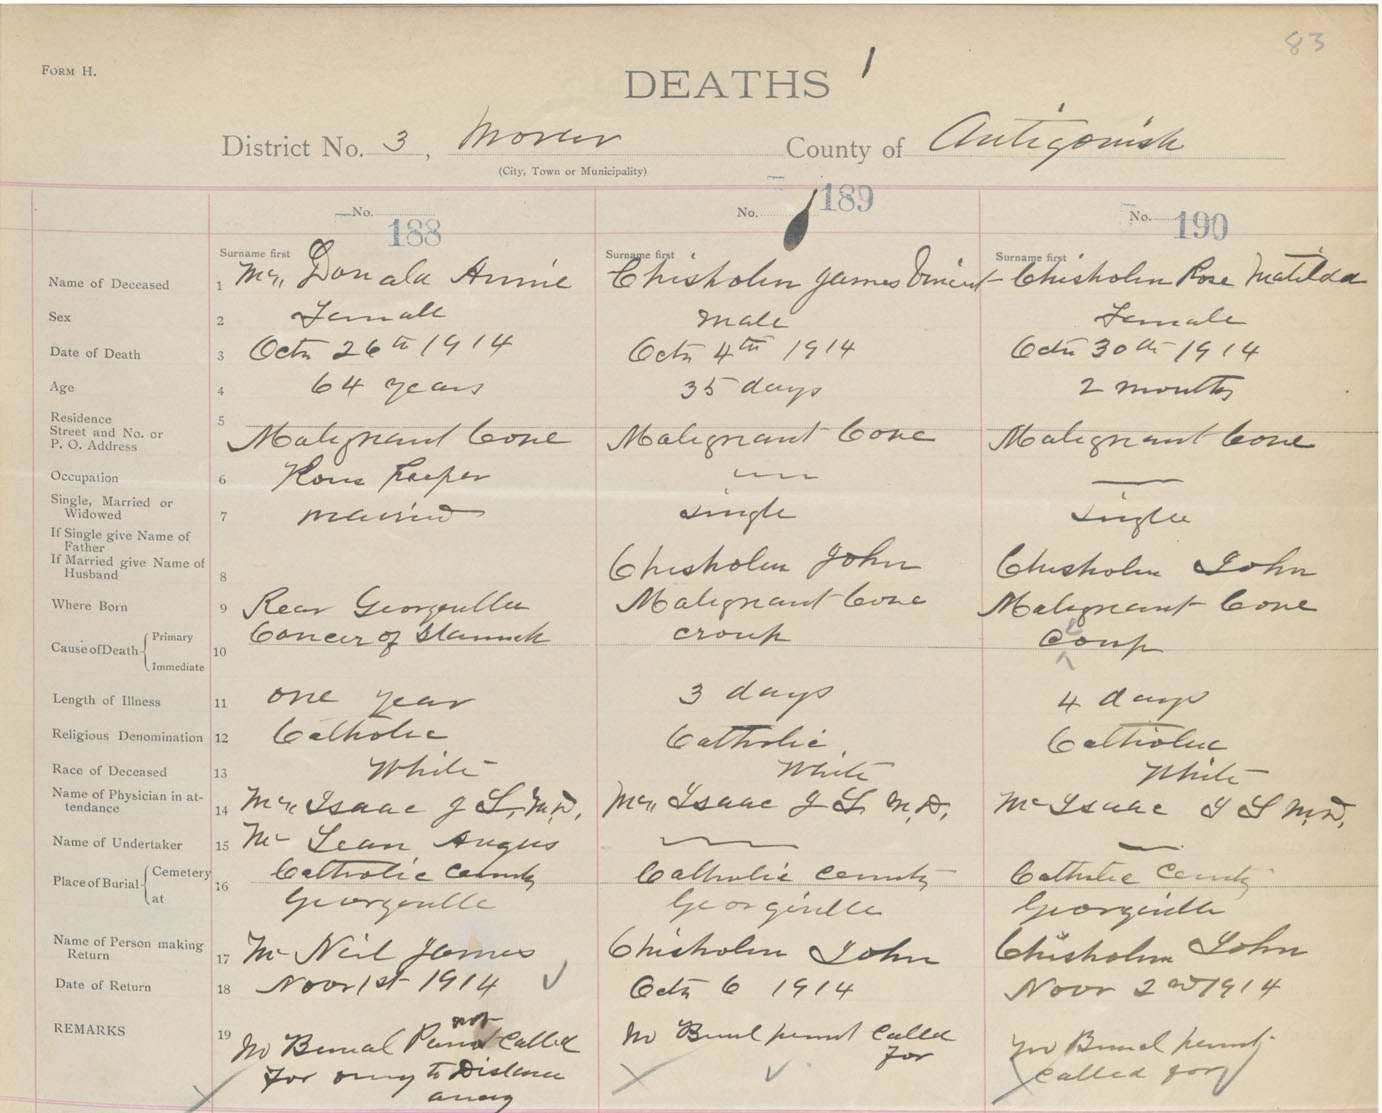 83
FORM H.
DEATHS
District No. 3, Morar County of Antigonish
(City, Town or Municipality)
No. 188 No. 189 No. 190
Surname first Surname first Surname first
Name of Deceased 1 Mc Donald Annie Chisholm James Vincent Chisholm Rose Matilda
Sex 2 Female Male Female
Date of Death 3 Octr 26th 1914 Octr 4th 1914 Octr 30th 1914
Age 4 64 years 35 days 2 months
Residence
Street and No. or 5
P. O. Address Malignant Cove Malignant Cove Malignant Cove
Occupation 6 Hous Keeper
Single, Married or
Widowed 7 married single single
If Single give Name of
Father
If Married give Name of
Husband 8 Chisholm John Chisholm John
Where Born 9 Rear Georgeville Malignant Cove Malignant Cove
Cause of Death Primary Cancer of Stomach croup Coup
10
Immediate
Length of Illness 11 one year 3 days 4 days
Religious Denomination 12 Catholic Catholic Catholic
Race of Deceased 13 White White White
Name of Physician in at-
tendance 14 Mc Isaac J L, M,D, Mc Isaac J L M,D, Mc Isaac J L M,D,
Name of Undertaker 15 Mc Lean Angus
Place of Burial Cemetery 16 Catholic Catholic Catholic
at Georgeville Georgeville Georgeville
Name of Person making
Return 17 Mc Neil James Chisholm John Chisholm John
Date of Return 18 Novr 1st 1914 Octr 6 1914 Novr 2nd 1914
REMARKS 19 no Burial not Called no Burial permit Called no Burial permit
for owing to Distance for called for
away